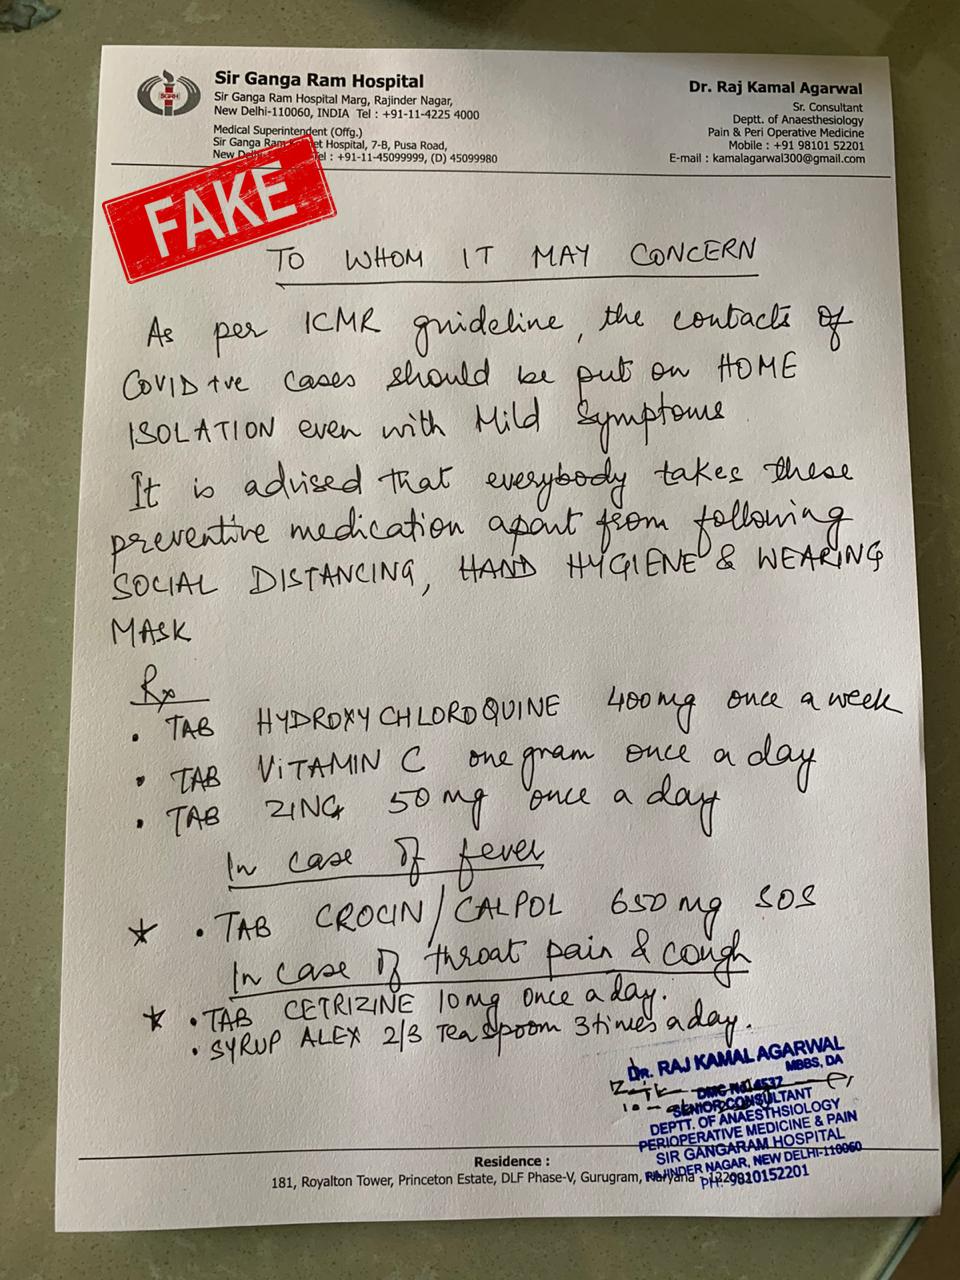 SGRH
Sir Ganga Ram Hospital
Sir Ganga Ram Hospital Marg, Rajinder Nagar,
New Delhi-110060, INDIA Tel : +91-11-4225 4000
Medical Superintendent (Offg.)
Sir Ganga Ram et Hospital, 7-B, Pusa Road,
New Tel : +91-11-45099999, (D) 45099980
Dr. Raj Kamal Agarwal
Sr. Consultant
Deptt. of Anaesthesiology
Pain & Peri Operative Medicine
Mobile : +91 98101 52201
E-mail : kamalagarwal300@gmail.com
FAKE
TO WHOM IT MAY CONCERN
As per ICMR guideline, the contacts of
COVID +ve cases should be put on HOME
ISOLATION even with Mild Symptoms
It is advised that everybody takes these
preventive medication apart from following
SOCIAL DISTANCING, HAND HYGIENE & WEARING
MASK
Rx
• TAB HYDROXYCHLOROQUINE 400mg once a week
• TAB VITAMIN C one gram once a day
• TAB ZING 50 mg once a day
In case of fever
★ • TAB CROCIN/CALPOL 650 mg SOS
In case of throat pain & cough
★ • TAB CETRIZINE 10mg once a day.
• SYRUP ALEX 2/3 Teaspoom 3times a day.
DR. RAJ KAMAL AGARWAL
MBBS, DA
DMC No. 4537
SENIOR CONSULTANT
DEPTT. OF ANAESTHSIOLOGY
PERIOPERATIVE MEDICINE & PAIN
SIR GANGARAM HOSPITAL
RAJINDER NAGAR, NEW DELHI-110060
PH: 9810152201
Residence :
181, Royalton Tower, Princeton Estate, DLF Phase-V, Gurugram, Haryana